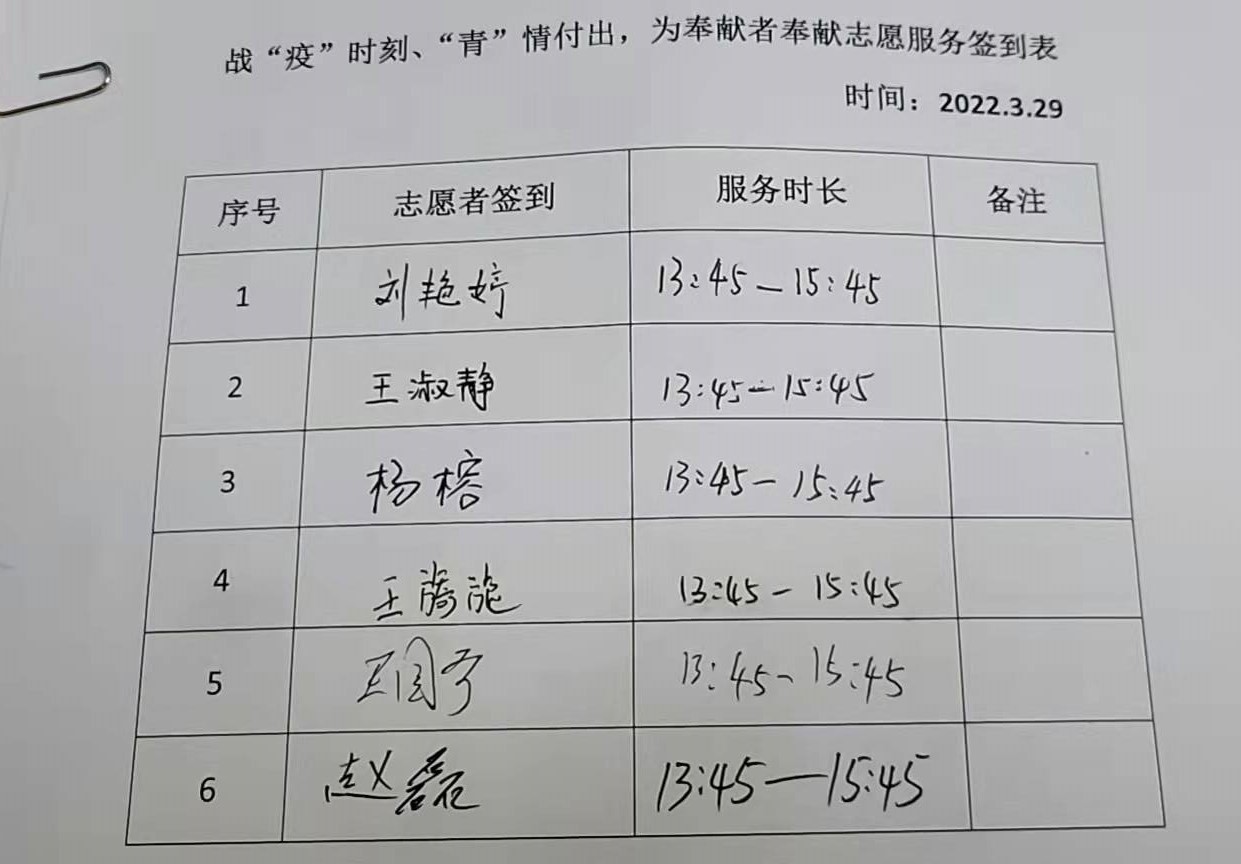 战“疫”时刻、“青”情付出，为奉献者奉献志愿服务签到表
时间：2022.3.29
序号 志愿者签到 服务时长 备注
1 刘艳婷 13:45—15:45
2 王淑静 13:45—15:45
3 杨榕 13:45—15:45
4 王 13:45—15:45
5 王 13:45—15:45
6 赵磊 13:45—15:45